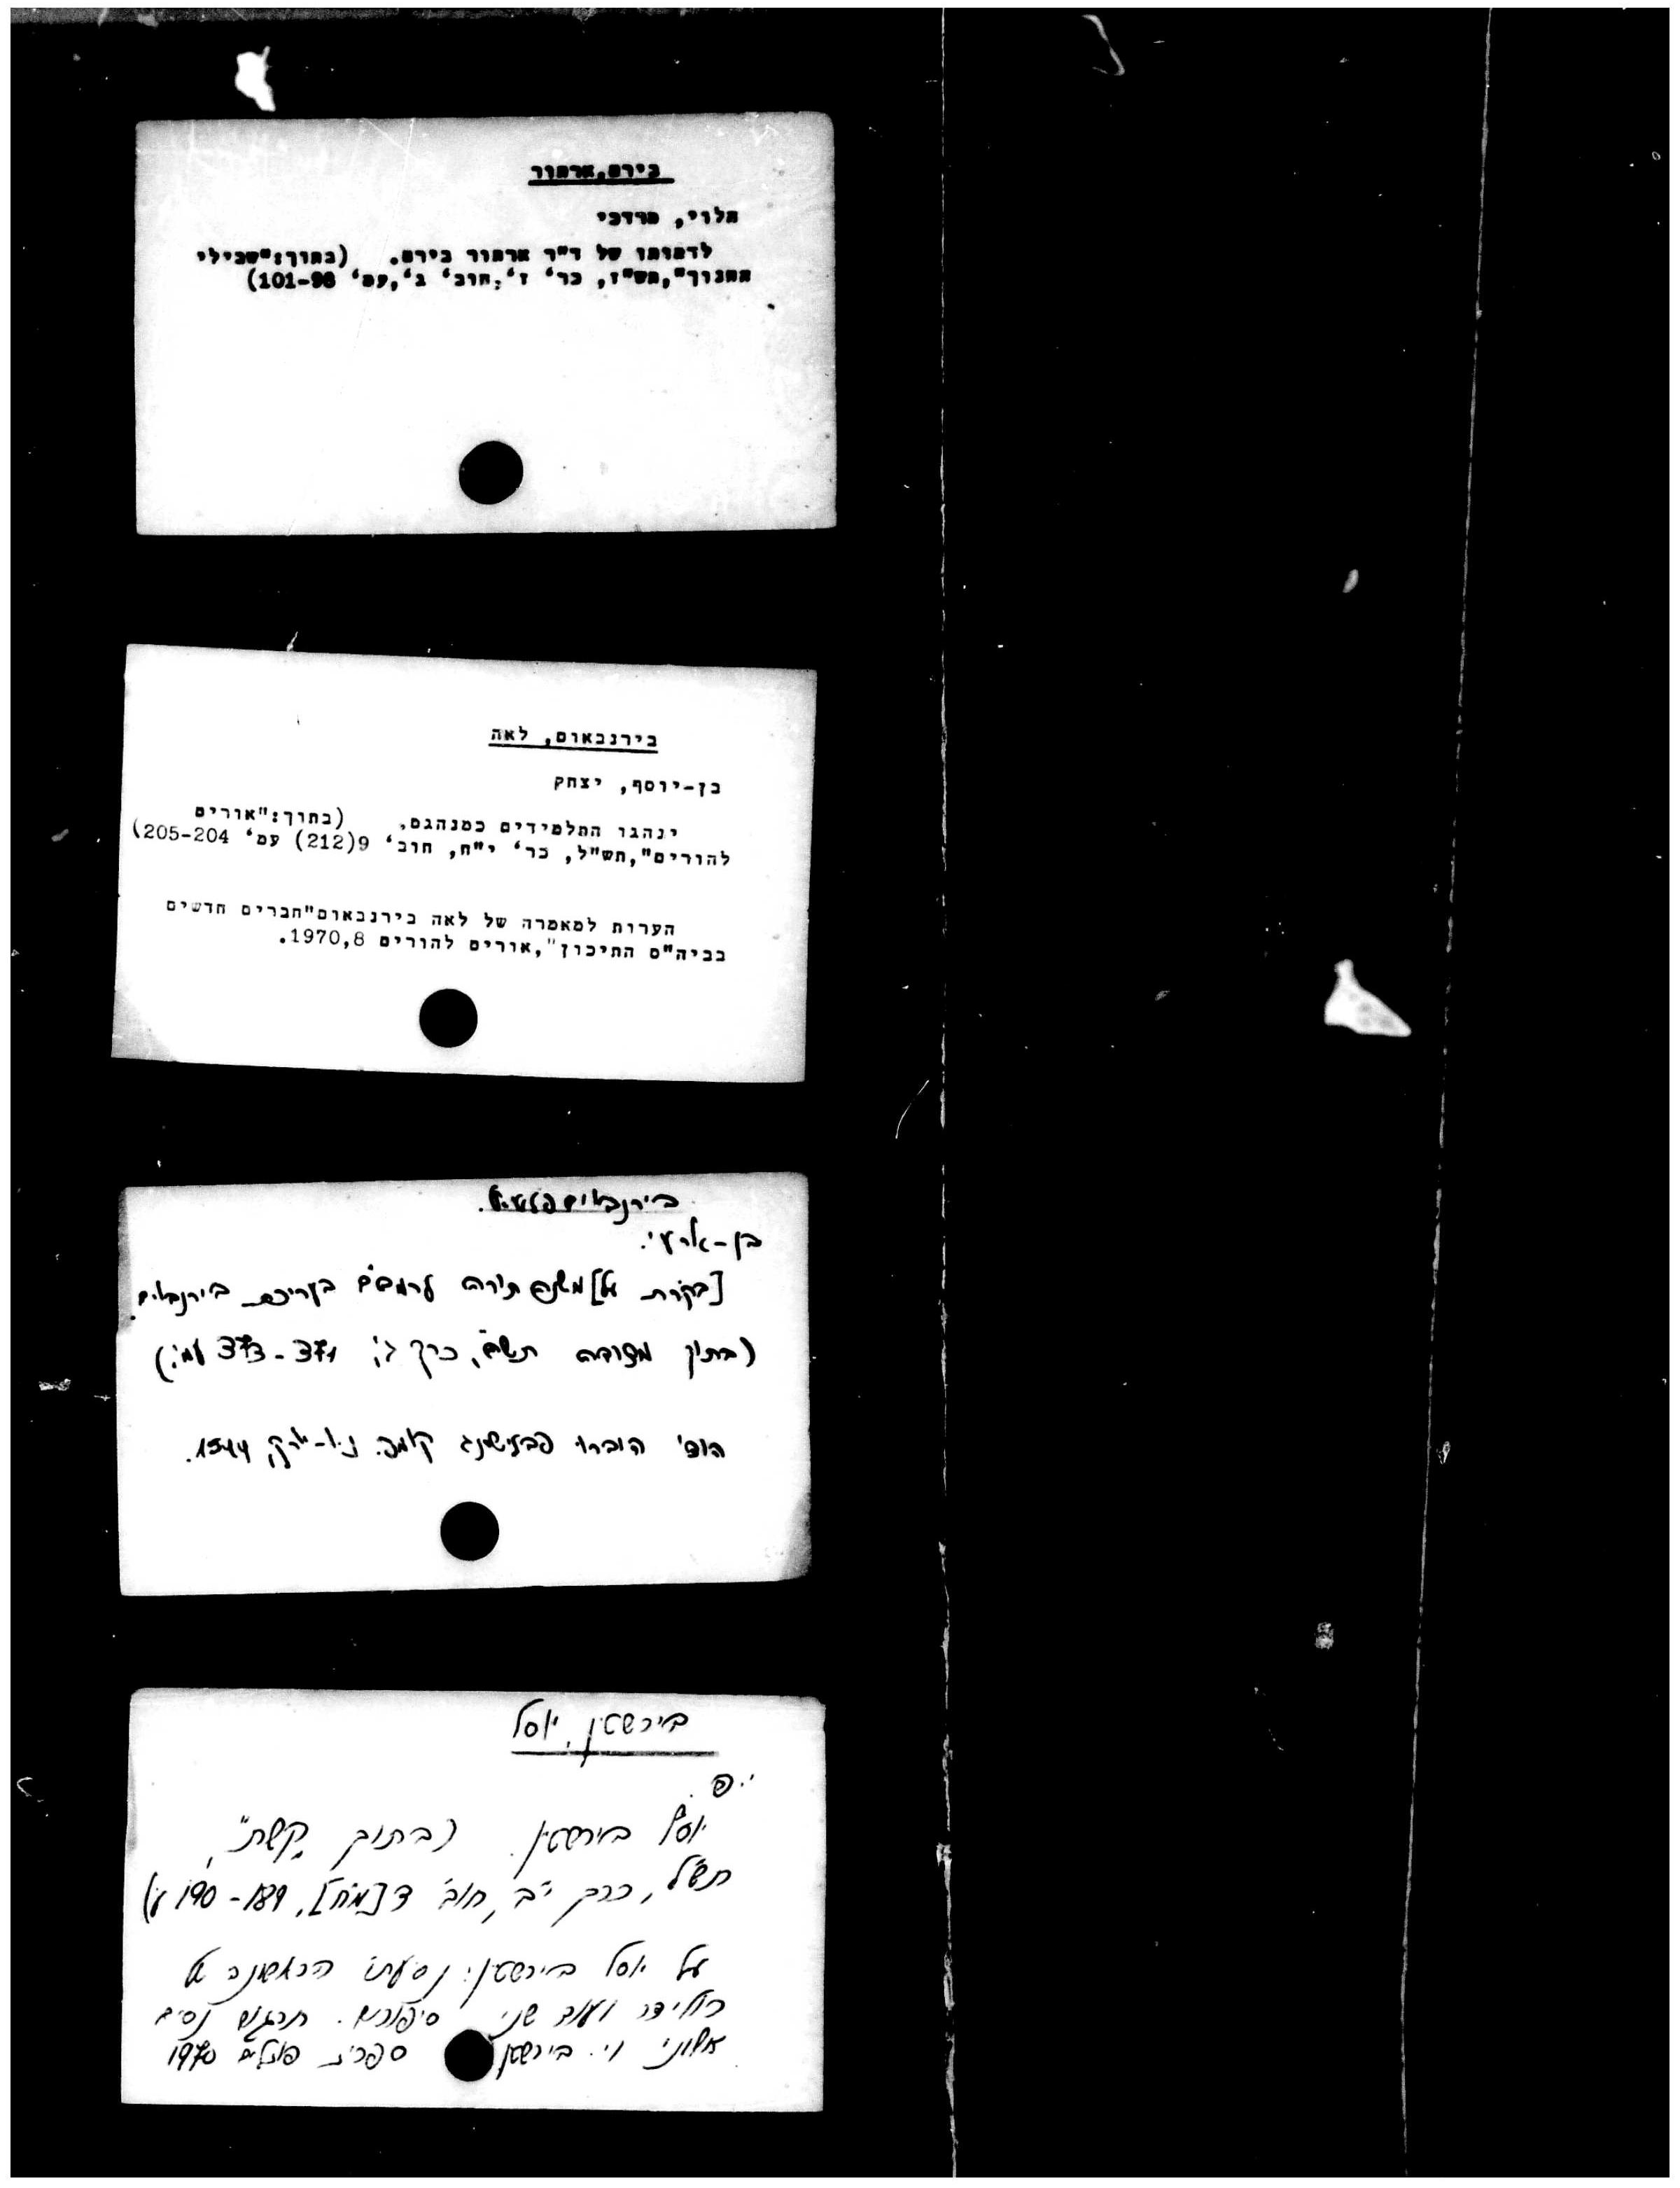 בירם,ארתור
הלוי, מרדכי
לדמותו של ד"ר ארתור בירם. (בתוך:"שבילי
החנוך",תש"ז, כר' ז',חוב' ב',עמ' 98-101)
בירנבאום, לאה
בן-יוסף, יצחק
ינהגו התלמידים כמנהגם. (בתוך:"אורים
להורים",תש"ל, כר' י"ח, חוב' 9(212) עמ' 204-205)
הערות למאמרה של לאה בירנבאום"חברים חדשים
בביה"ס התיכון",אורים להורים 1970,8.
בירנבוים
בן-
[בקרת על] משנה תורה לרמב"ם בעריכת בירנבוים.
(בתוך מצודה תש"ה, כרך ג', 371-373 עמ')
הוצ' היברו פבלישינג קאמפ. ניו-יורק, 1944.
בירשטין, יוסל
י.ס.
יוסל בירשטין. (בתוך "קשת",
תש"ל, כרך י"ב, חוב' ד [מ"ח], 189-190 ע')
על יוסל בירשטין: נסיעתו הראשונה של
רולידר ועוד שני סיפורים. תרגום נסים
אלוני וי. בירשטין ספרית פועלים 1970